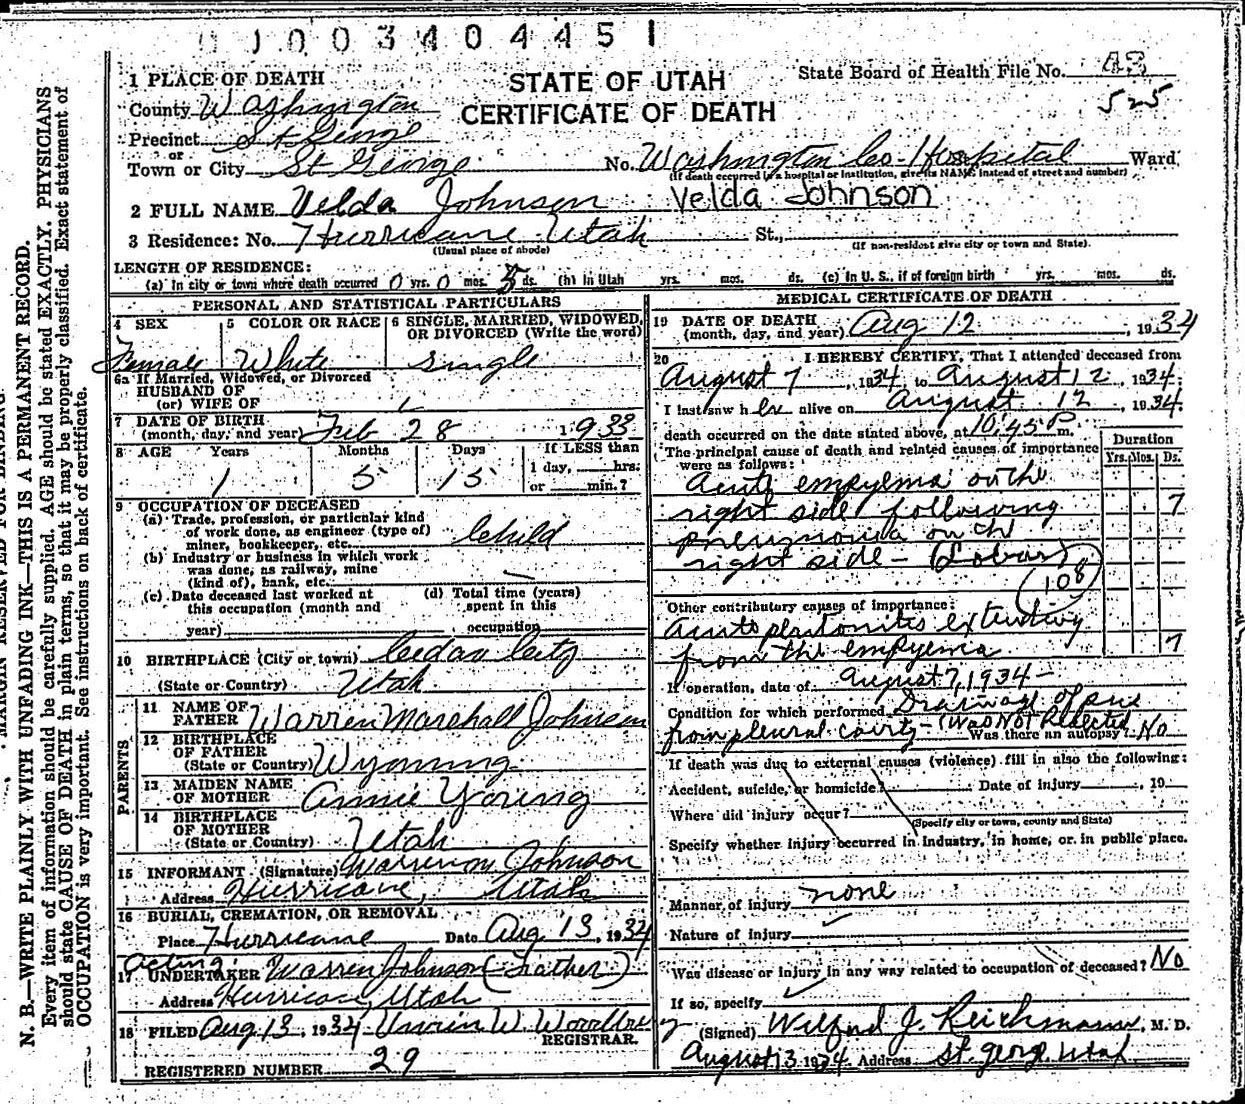 0 1 0 0 3 4 0 4 4 5 1
STATE OF UTAH
CERTIFICATE OF DEATH
State Board of Health File No. 43
525
1 PLACE OF DEATH
County Washington
Precinct St George
or
Town or City St George No. Washington Co-Hospital Ward
(If death occurred in a hospital or institution, give its NAME instead of street and number)
2 FULL NAME Velda Johnson Velda Johnson
3 Residence: No. Hurricane Utah St.,
(Usual place of abode) (If non-resident give city or town and State).
LENGTH OF RESIDENCE:
(a) In city or town where death occurred 0 yrs. 0 mos. 5 ds. (b) In Utah yrs. mos. ds. (c) In U. S., if of foreign birth yrs. mos. ds.
PERSONAL AND STATISTICAL PARTICULARS
4 SEX 5 COLOR OR RACE 6 SINGLE, MARRIED, WIDOWED, OR DIVORCED (Write the word)
Female White Single
6a If Married, Widowed, or Divorced
HUSBAND OF
(or) WIFE OF
7 DATE OF BIRTH
(month, day, and year) Feb 28 1933
8 AGE Years Months Days If LESS than
1 5 15 1 day, hrs.
or min.?
9 OCCUPATION OF DECEASED
(a) Trade, profession, or particular kind
of work done, as engineer (type of)
miner, bookkeeper, etc. Child
(b) Industry or business in which work
was done, as railway, mine
(kind of), bank, etc.
(c) Date deceased last worked at (d) Total time (years)
this occupation (month and spent in this
year) occupation
10 BIRTHPLACE (City or town) Cedar City
(State or Country) Utah
PARENTS
11 NAME OF
FATHER Warren Marshall Johnson
12 BIRTHPLACE
OF FATHER
(State or Country) Wyoming
13 MAIDEN NAME
OF MOTHER Annie Young
14 BIRTHPLACE
OF MOTHER
(State or Country) Utah
15 INFORMANT (Signature) Warren M Johnson
Address Hurricane, Utah
16 BURIAL, CREMATION, OR REMOVAL
Place Hurricane Date Aug 13, 1934
Acting
17 UNDERTAKER Warren Johnson (Father)
Address Hurricane, Utah
18 FILED Aug 13, 1934 W.
REGISTRAR.
REGISTERED NUMBER 29
MEDICAL CERTIFICATE OF DEATH
19 DATE OF DEATH
(month, day, and year) Aug 12, 1934
20 I HEREBY CERTIFY, That I attended deceased from
August 7, 1934, to August 12, 1934;
I last saw her alive on August 12, 1934.
death occurred on the date stated above, at 10:45 P m.
The principal cause of death and related causes of importance
were as follows:
Duration
Yrs. Mos. Ds.
Acute empyema on the
right side following 7
pneumonia on th
right side - (Lobar)
(108)
Other contributory causes of importance:
Acute peritonitis extending
from the empyema 7
If operation, date of August 7, 1934 -
Condition for which performed Drainage of pus
from pleural cavity - (Was Not Resected
Was there an autopsy? No
If death was due to external causes (violence) fill in also the following:
Accident, suicide, or homicide? Date of injury , 19
Where did injury occur?
(Specify city or town, county and State)
Specify whether injury occurred in industry, in home, or in public place.
Manner of injury none
Nature of injury
Was disease or injury in any way related to occupation of deceased? No
If so, specify
(Signed) Wilford J. Reichmann, M. D.
August 13 1934 Address St. George Utah
MARGIN RESERVED FOR BINDING
N. B.—WRITE PLAINLY WITH UNFADING INK—THIS IS A PERMANENT RECORD.
Every item of information should be carefully supplied. AGE should be stated EXACTLY. PHYSICIANS
should state CAUSE OF DEATH in plain terms, so that it may be properly classified. Exact statement of
OCCUPATION is very important. See instructions on back of certificate.